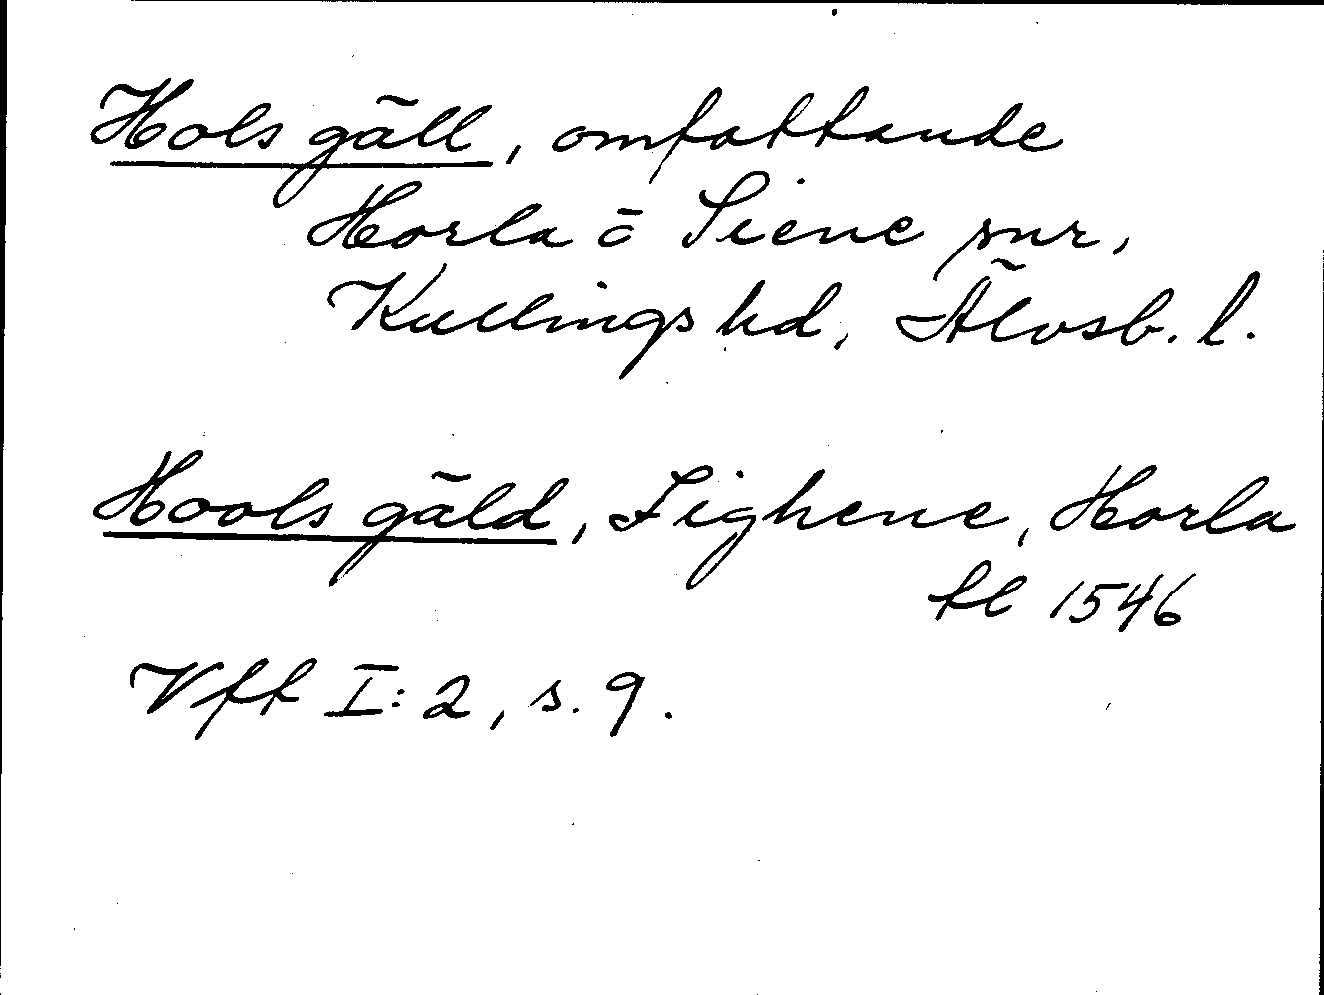 Hols gäll, omfattande
Horla o Siene snr,
Kullings hd, Älvsb. l.
Hools gäld, Sighene, Horla
tl 1546
Vft I: 2, s. 9.